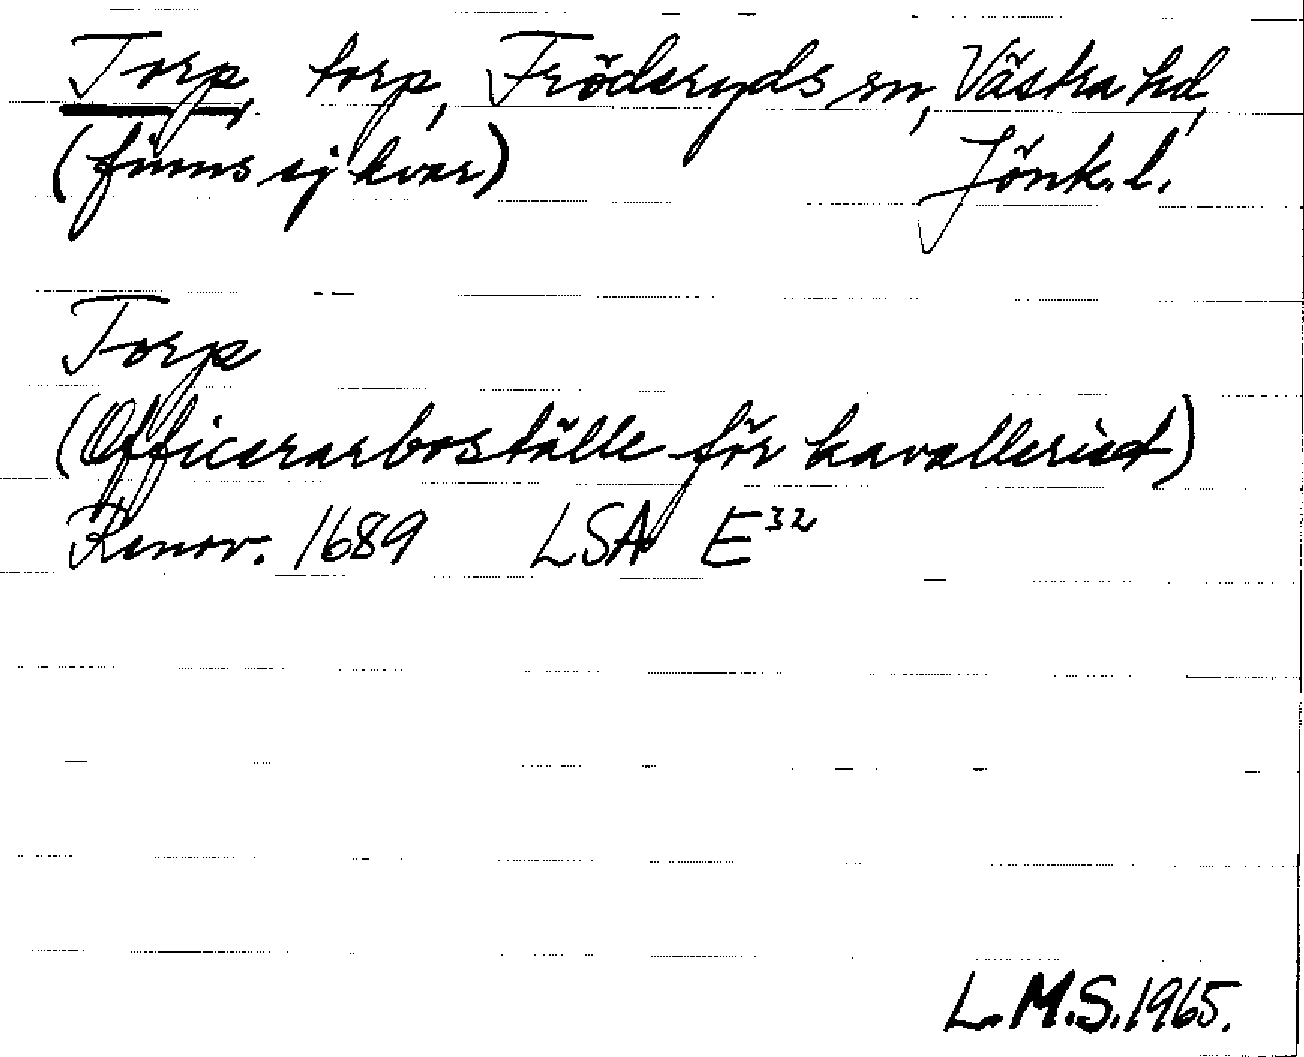 Torp, torp, Fröderyds sn, Västra hd,
(finns ej kvar) Jönk. l.
Torp
(Officerarboställe för kavalleriet)
Renov. 1689 LSA E³²
L.M.S. 1965.